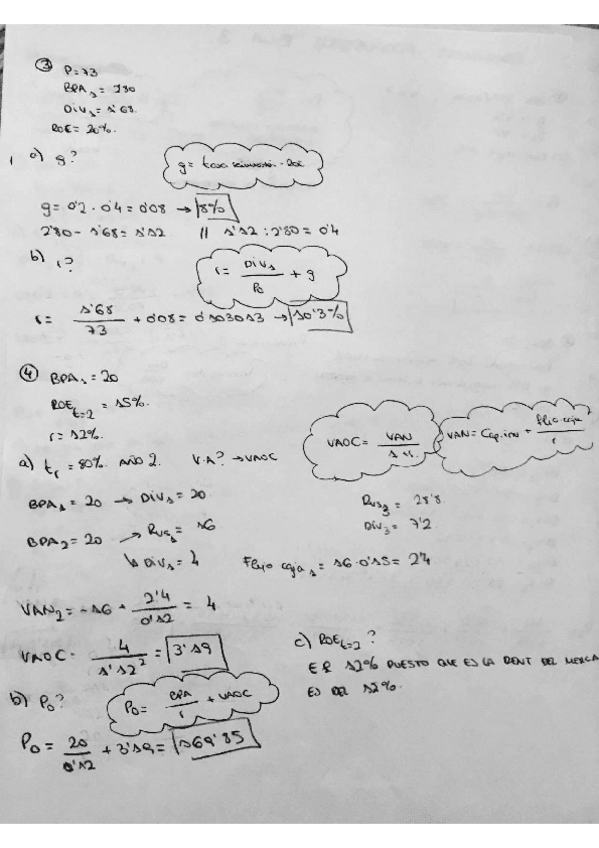 ③ P=73
BPA₁ = 2'80
Div₁ = 1'68.
ROE = 20%.
a) g?
g = tasa reinversión · ROE
g = 0'2 · 0'4 = 0'08 → 8%
2'80 - 1'68 = 1'12 // 1'12 : 2'80 = 0'4
b) r?
r = Div₁ / P₀ + g
r = 1'68 / 73 + 0'08 = 0'103013 → 10'3%
④ BPA₁ = 20
ROE t=2 = 15%.
r = 12%.
VAOC = VAN / 1'12
VAN = Cap.inv + Flujo caja / r
a) tr = 80% AÑO 2. V.A? → VAOC
BPA₁ = 20 → Div₁ = 20
Rvs₃ = 28'8
Div₃ = 7'2
BPA₂ = 20 → Rvs₁ = 16
↳ Div₁ = 4
Flujo caja₁ = 16 · 0'15 = 2'4
VAN₂ = -16 + 2'4 / 0'12 = 4
VAOC = 4 / 1'12² = 3'19
c) ROE t=2?
PUESTO QUE ES LA RENT DEL MERCA
ES DEL 12%.
b) P₀?
P₀ = BPA / r + VAOC
P₀ = 20 / 0'12 + 3'19 = 169'85